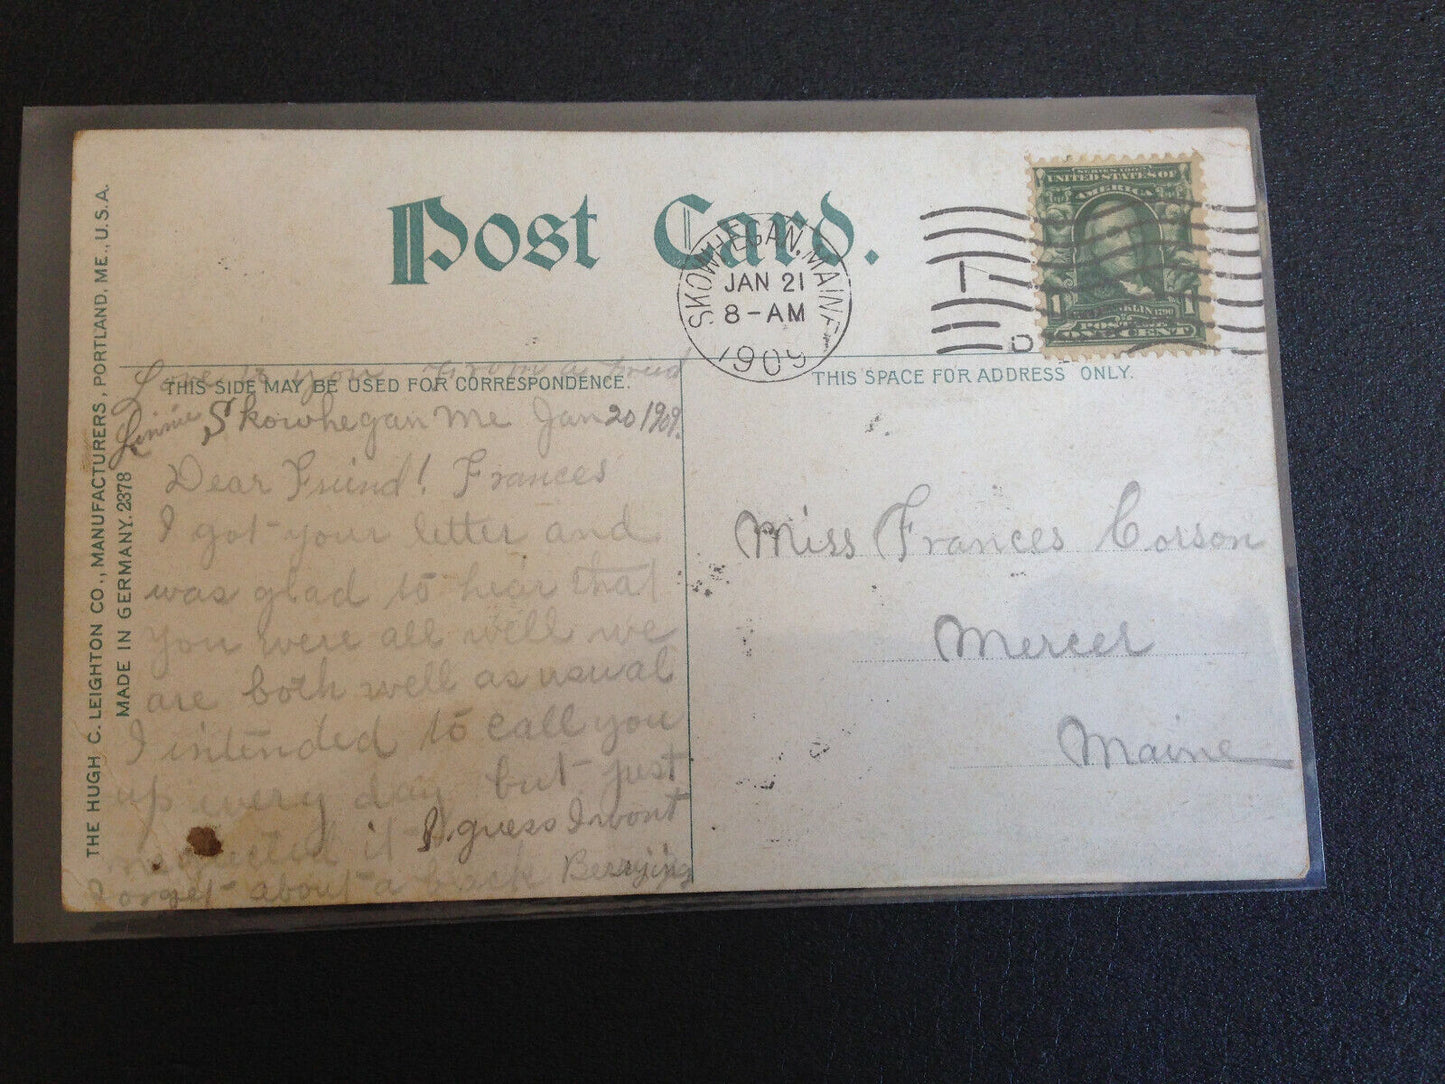 Post Card.
SKOWHEGAN, MAINE
JAN 21
8-AM
1909
SERIES 1902
UNITED STATES OF
AMERICA
FRANKLIN 1790
POSTAGE
1 1
ONE CENT
THE HUGH C. LEIGHTON CO., MANUFACTURERS, PORTLAND, ME., U.S.A.
MADE IN GERMANY. 2378
Love to you From a Friend
Linnie
THIS SIDE MAY BE USED FOR CORRESPONDENCE.
Skowhegan Me Jan 20 1909.
Dear Friend! Frances
I got your letter and
was glad to hear that
you were all well we
are both well as usual
I intended to call you
up every day but just
neglected it I guess I wont
forget about a back Berrying
THIS SPACE FOR ADDRESS ONLY.
Miss Frances Corson
Mercer
Maine